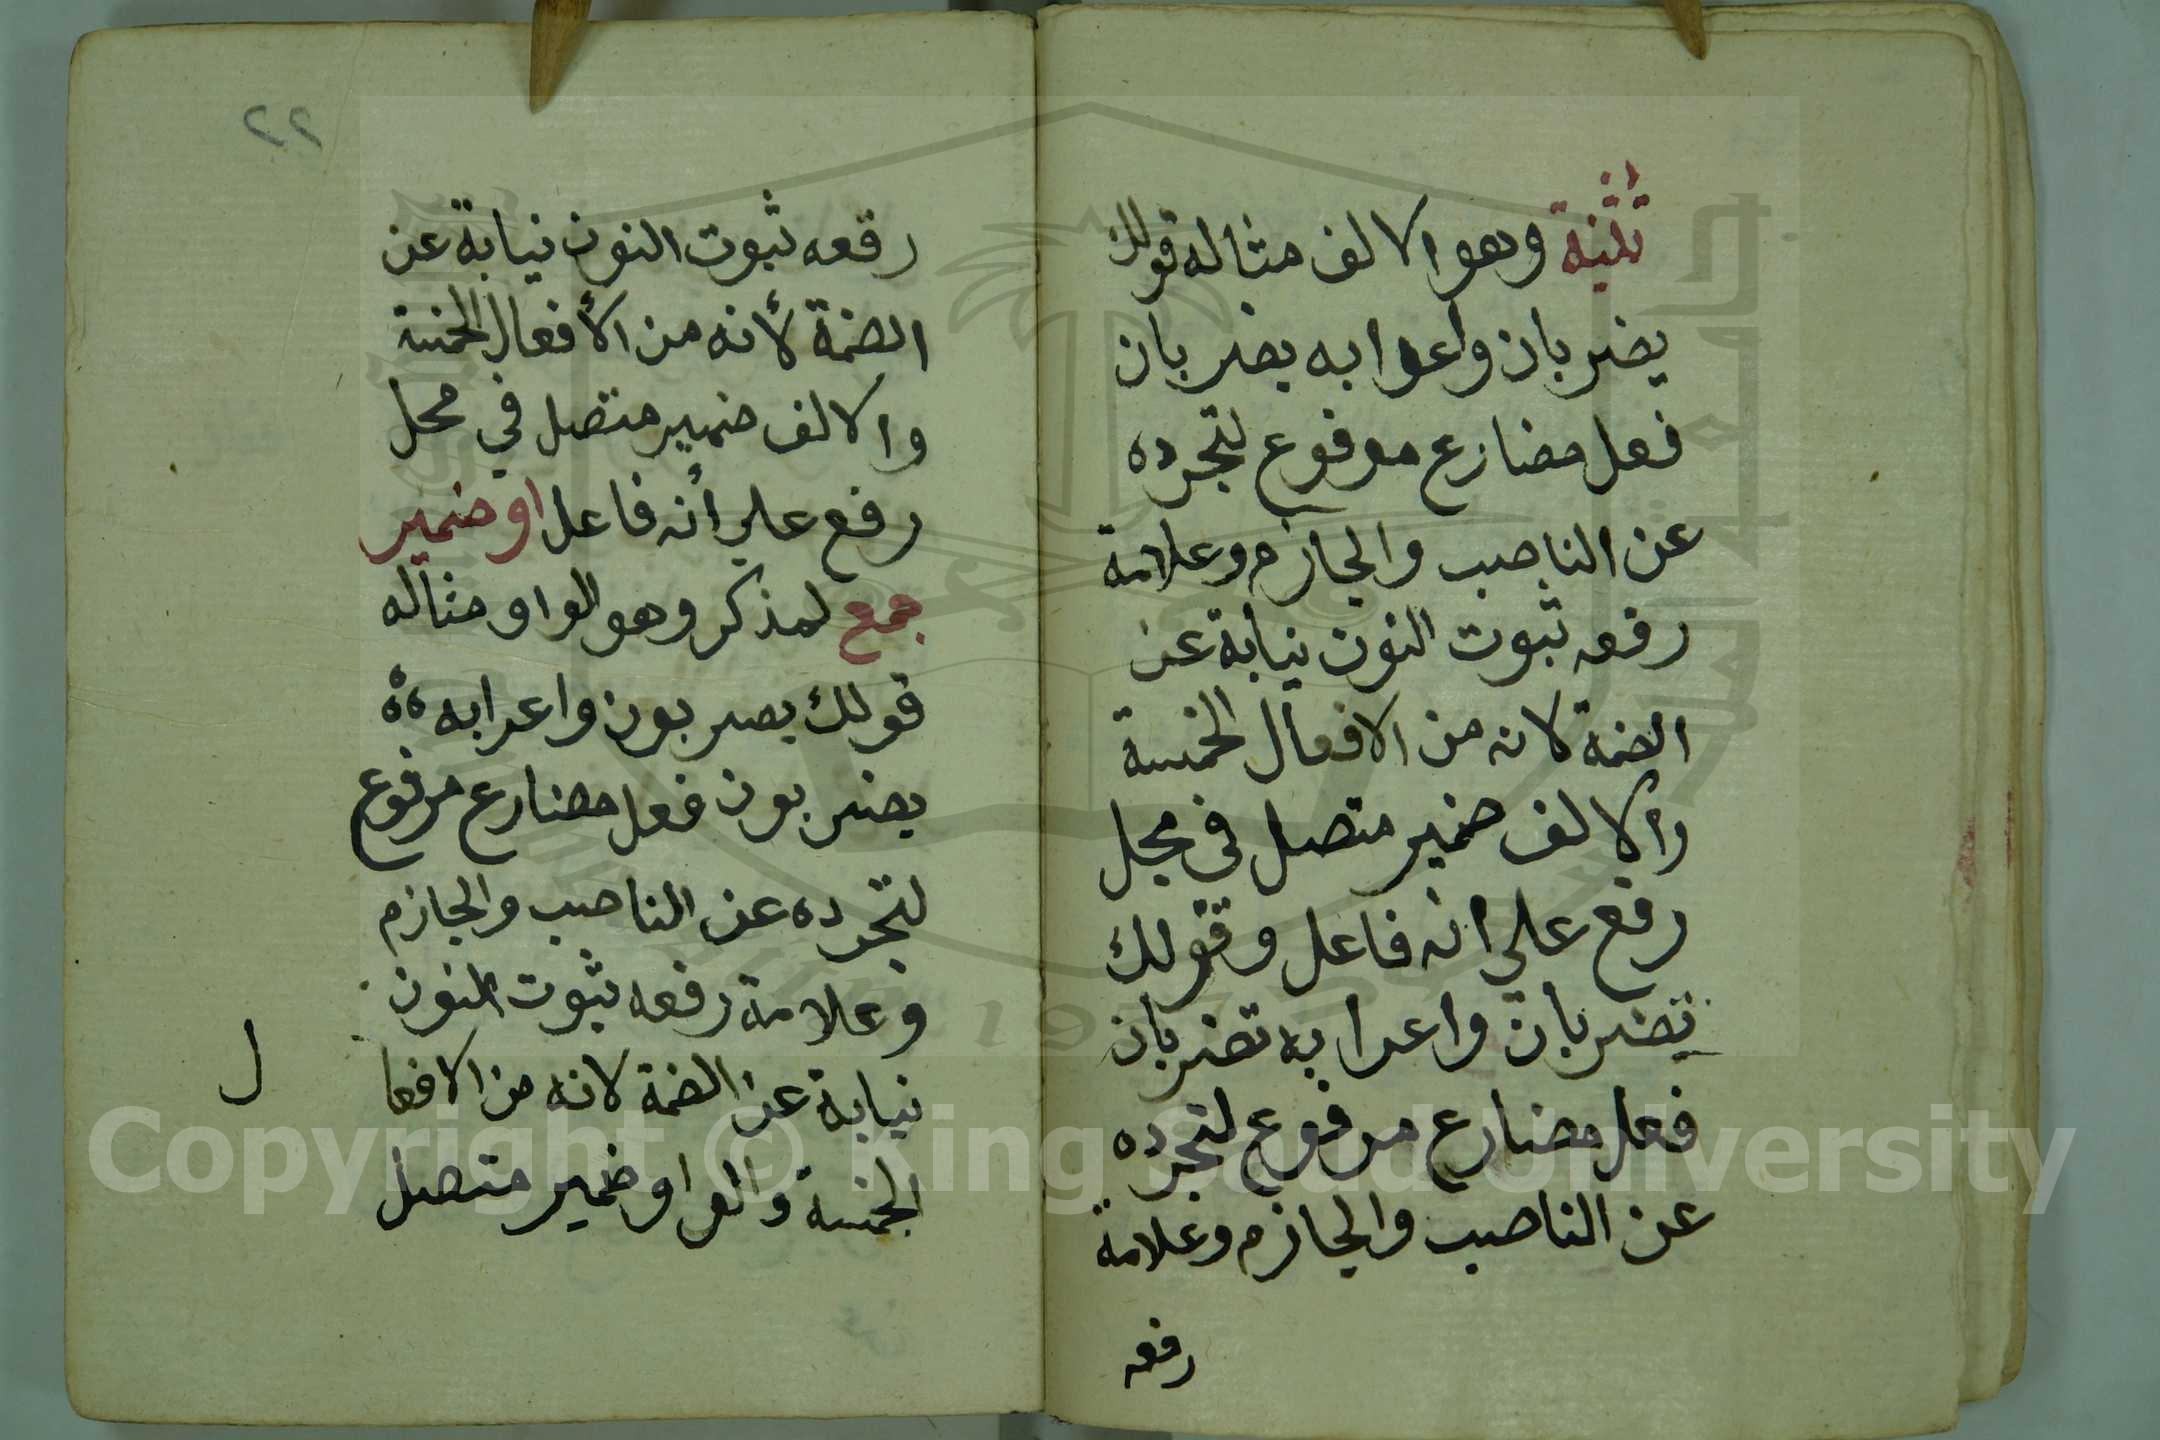 تثنية وهو الالف مثاله قولك
يضربان واعرابه يضربان
فعل مضارع مرفوع لتجرده
عن الناصب والجازم وعلامة
رفعه ثبوت النون نيابة عن
الضمة لانه من الافعال الخمسة
والالف ضمير متصل في محل
رفع علي انه فاعل وقولك
تضربان واعرابه تضربان
فعل مضارع مرفوع لتجرده
عن الناصب والجازم وعلامة
رفعه
٢٢
رفعه ثبوت النون نيابة عن
الضمة لأنه من الأفعال الخمسة
والالف ضمير متصل في محل
رفع علي أنه فاعل او ضمير
جمع لمذكر وهو الواو مثاله
قولك يضربون واعرابه
يضربون فعل مضارع مرفوع
لتجرده عن الناصب والجازم
وعلامة رفعه ثبوت النون
نيابة عن الضمة لانه من الافعا
ل
الخمسة والواو ضمير متصل
Copyright © King Saud University
1957